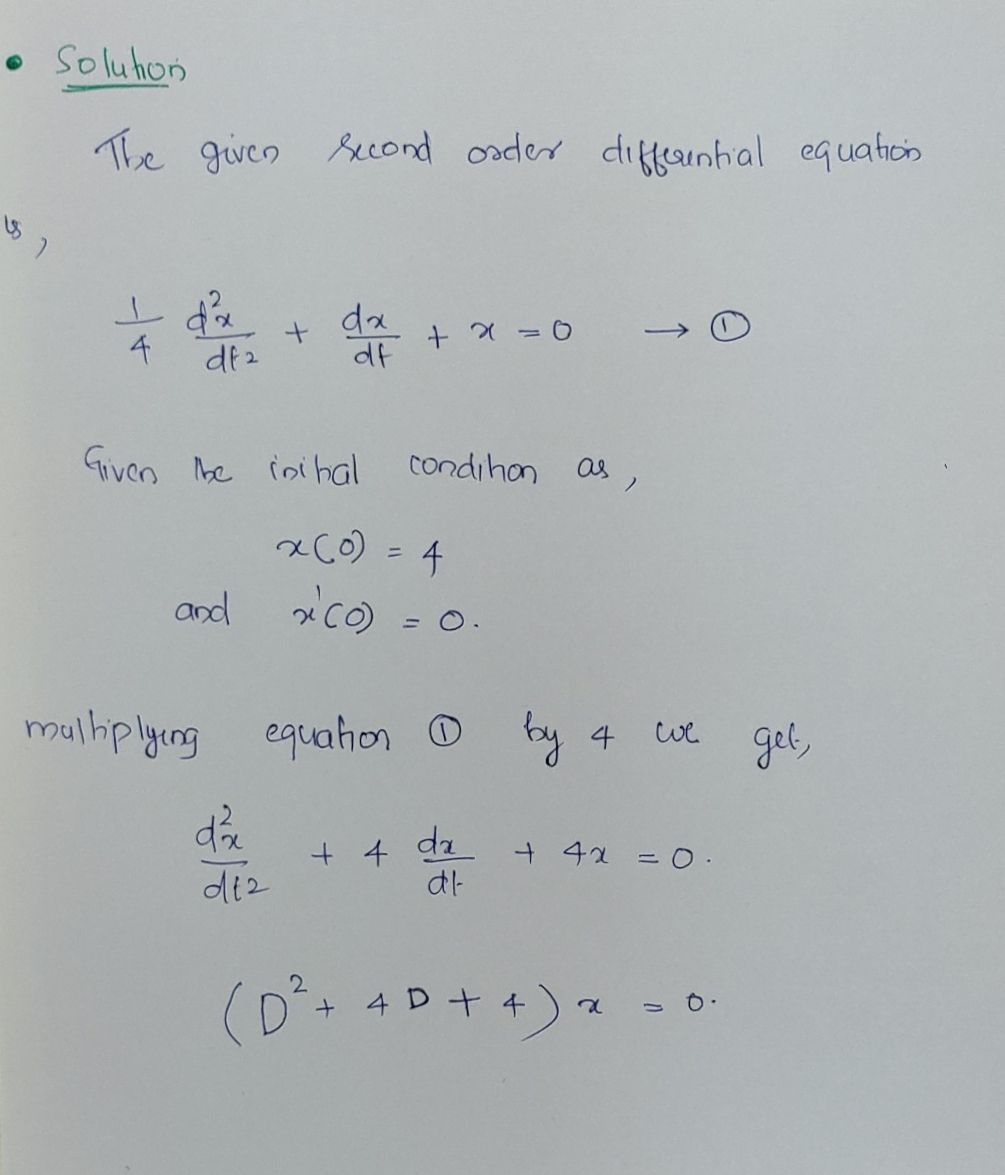 • Solution
The given second order differential equation
is,
1/4 d²x/dt² + dx/dt + x = 0 → ①
Given the initial condition as,
x(0) = 4
and x'(0) = 0.
multiplying equation ① by 4 we get,
d²x/dt² + 4 dx/dt + 4x = 0.
(D² + 4D + 4) x = 0.